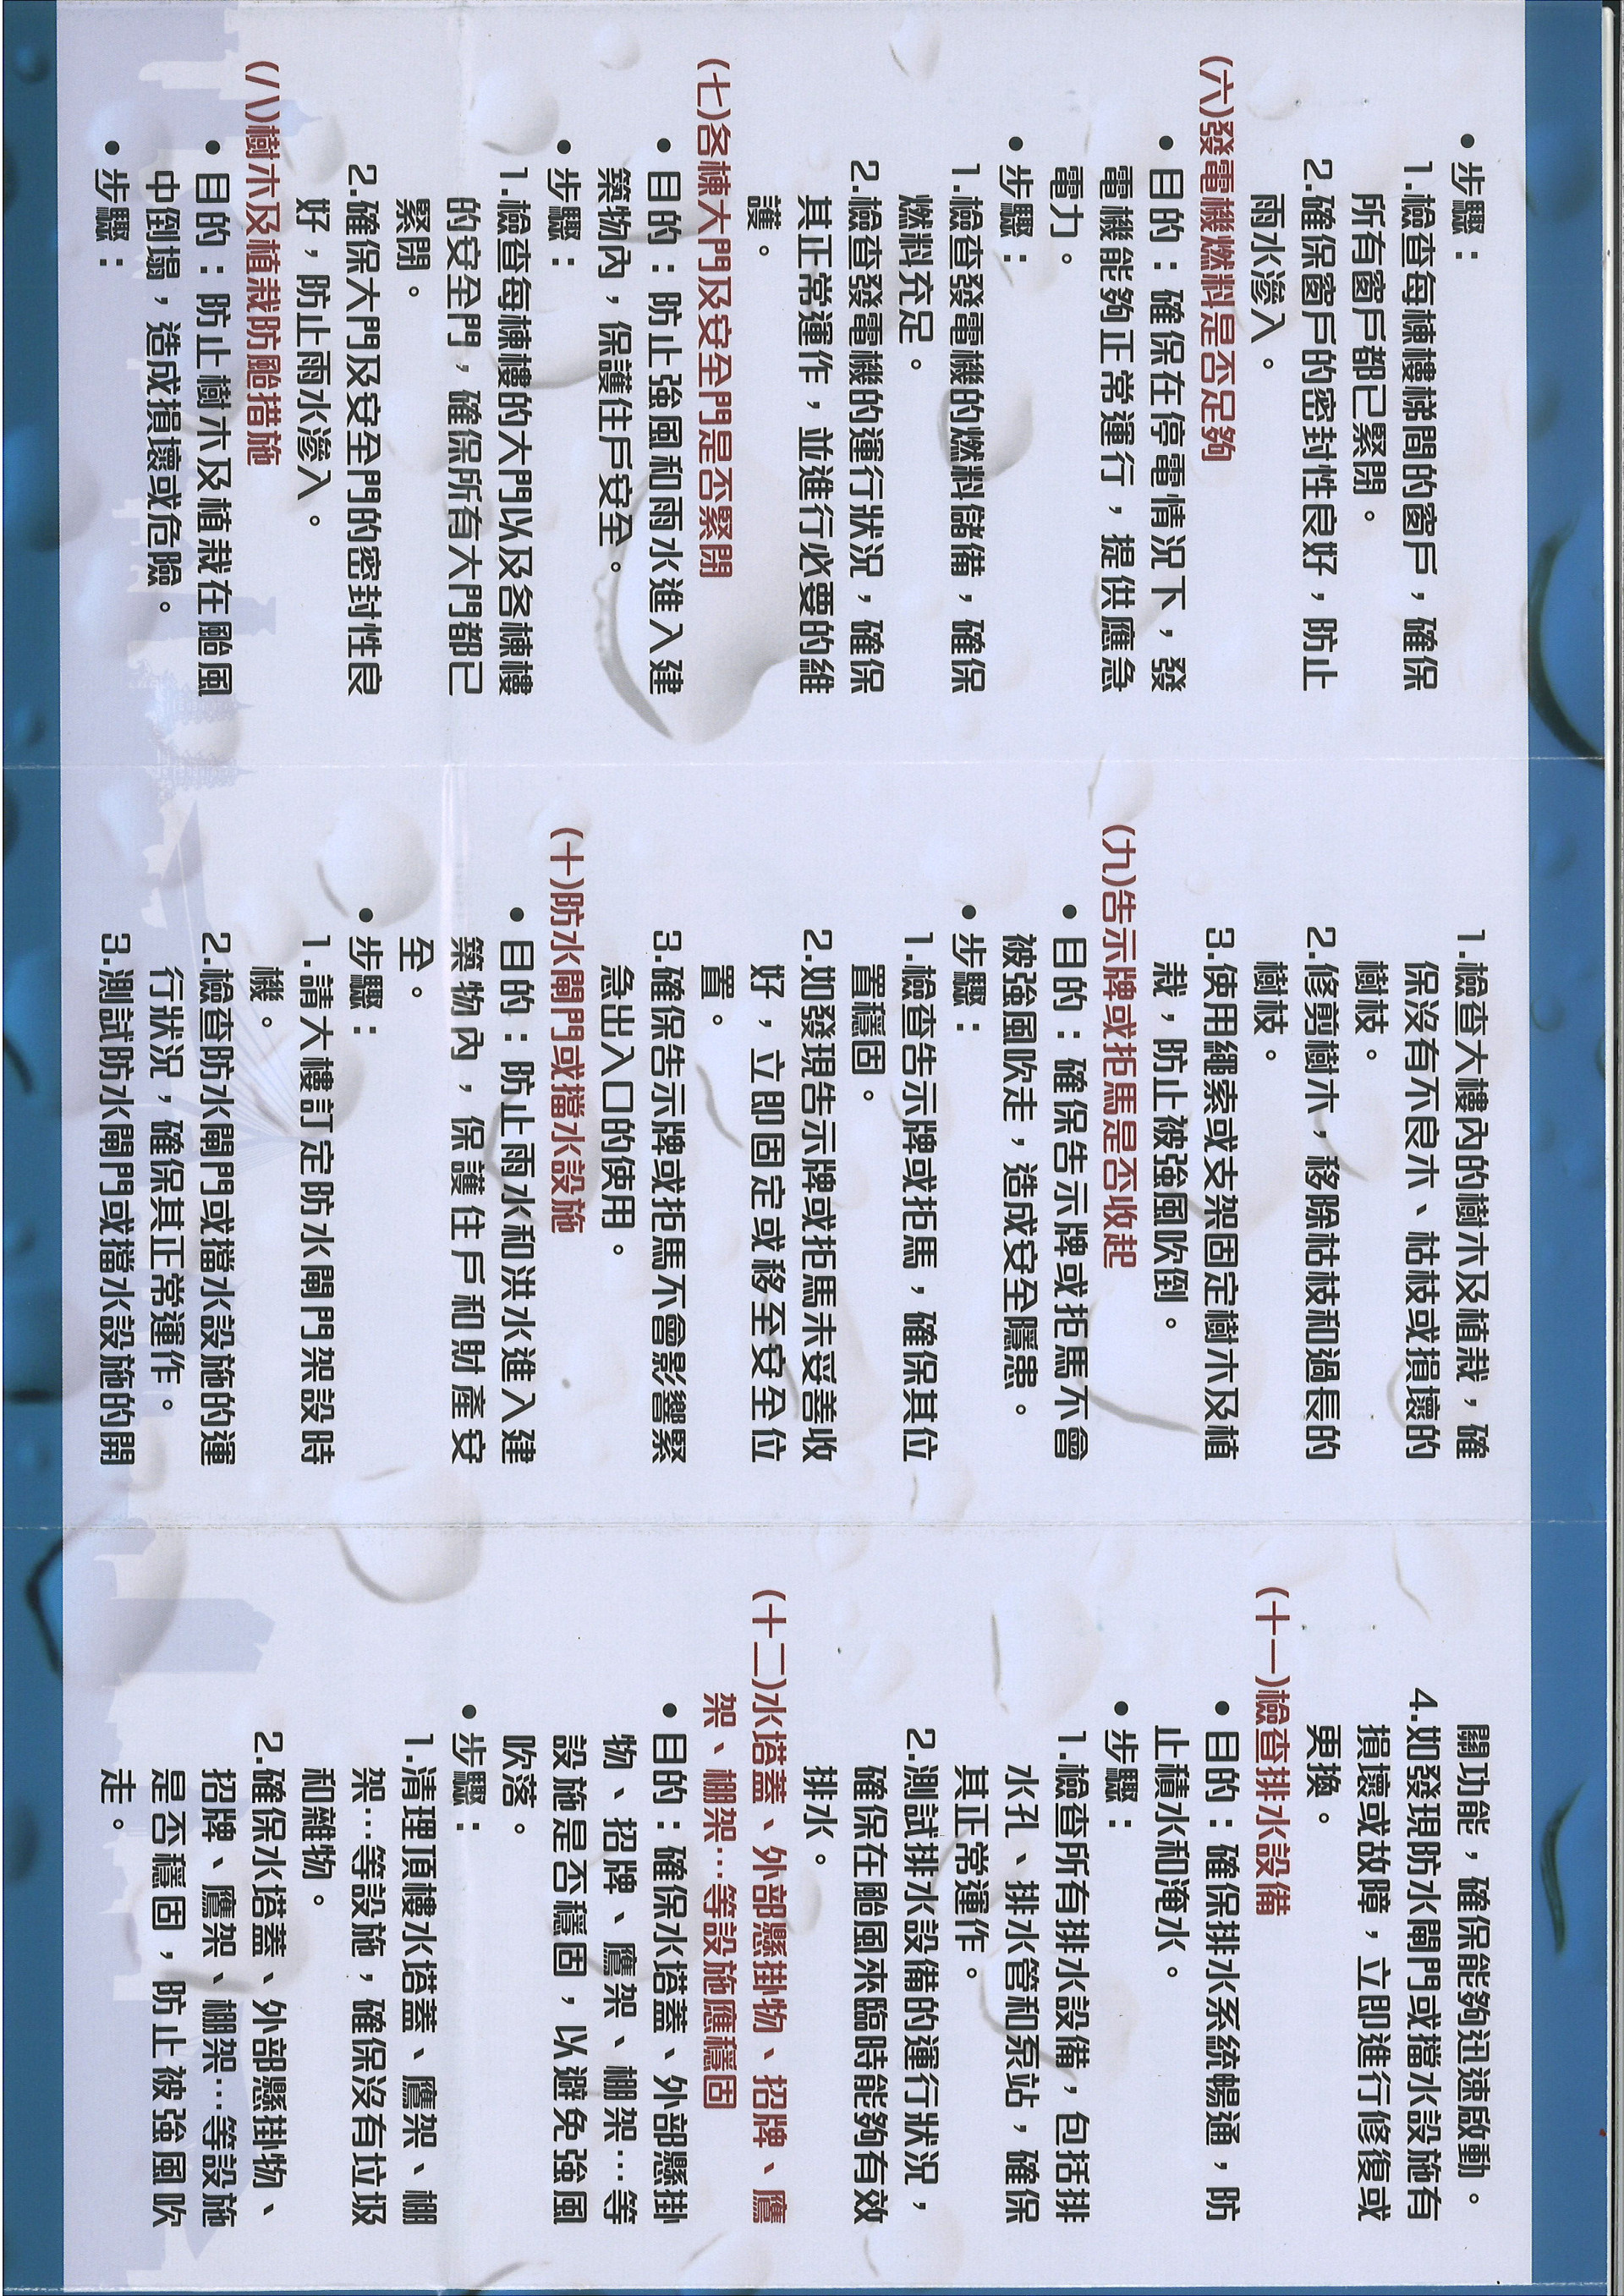 • 步驟：
1.檢查每棟樓樓梯間的窗戶，確保
所有窗戶都已緊閉。
2.確保窗戶的密封性良好，防止
雨水滲入。
(六)發電機燃料是否足夠
• 目的：確保在停電情況下，發
電機能夠正常運行，提供應急
電力。
• 步驟：
1.檢查發電機的燃料儲備，確保
燃料充足。
2.檢查發電機的運行狀況，確保
其正常運作，並進行必要的維
護。
(七)各棟大門及安全門是否緊閉
• 目的：防止強風和雨水進入建
築物內，保護住戶安全。
• 步驟：
1.檢查每棟樓的大門以及各棟樓
的安全門，確保所有大門都已
緊閉。
2.確保大門及安全門的密封性良
好，防止雨水滲入。
(八)樹木及植栽防颱措施
• 目的：防止樹木及植栽在颱風
中倒塌，造成損壞或危險。
• 步驟：
1.檢查大樓內的樹木及植栽，確
保沒有不良木、枯枝或損壞的
樹枝。
2.修剪樹木，移除枯枝和過長的
樹枝。
3.使用繩索或支架固定樹木及植
栽，防止被強風吹倒。
(九)告示牌或拒馬是否收起
• 目的：確保告示牌或拒馬不會
被強風吹走，造成安全隱患。
• 步驟：
1.檢查告示牌或拒馬，確保其位
置穩固。
2.如發現告示牌或拒馬未妥善收
好，立即固定或移至安全位
置。
3.確保告示牌或拒馬不會影響緊
急出入口的使用。
(十)防水閘門或擋水設施
• 目的：防止雨水和洪水進入建
築物內，保護住戶和財產安
全。
• 步驟：
1.請大樓訂定防水閘門架設時
機。
2.檢查防水閘門或擋水設施的運
行狀況，確保其正常運作。
3.測試防水閘門或擋水設施的開
關功能，確保能夠迅速啟動。
4.如發現防水閘門或擋水設施有
損壞或故障，立即進行修復或
更換。
(十一)檢查排水設備
• 目的：確保排水系統暢通，防
止積水和淹水。
• 步驟：
1.檢查所有排水設備，包括排
水孔、排水管和泵站，確保
其正常運作。
2.測試排水設備的運行狀況，
確保在颱風來臨時能夠有效
排水。
(十二)水塔蓋、外部懸掛物、招牌、鷹
架、棚架…等設施應穩固
• 目的：確保水塔蓋、外部懸掛
物、招牌、鷹架、棚架…等
設施是否穩固，以避免強風
吹落。
• 步驟：
1.清理頂樓水塔蓋、鷹架、棚
架…等設施，確保沒有垃圾
和雜物。
2.確保水塔蓋、外部懸掛物、
招牌、鷹架、棚架…等設施
是否穩固，防止被強風吹
走。